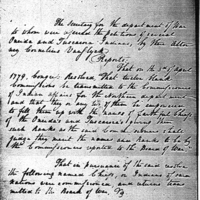 The Secretary for the department of War
to whom were referred the petitions of several
Oneida and Tuscarora Indians, by their Attor
ney Cornelius
(Reports)
That on the 3d of April
1779, Congress Resolved, That twelve blank
Commissions be transmitted to the Commissioners
of Indian affairs for the northern department
and that they or any two of them be empowered
to fill them up with the names of faithful Chiefs
of the Oneida's and Tuscarora's giving them
such Ranks as the said Commissioners shall
judge they merit the names and Ranks to be by
the Commissioners reported to the Board of War.
That in pursuance of the said
the following named Chiefs, or Indians of said
nations were commissioned, and returns
mitted to the Board of War.